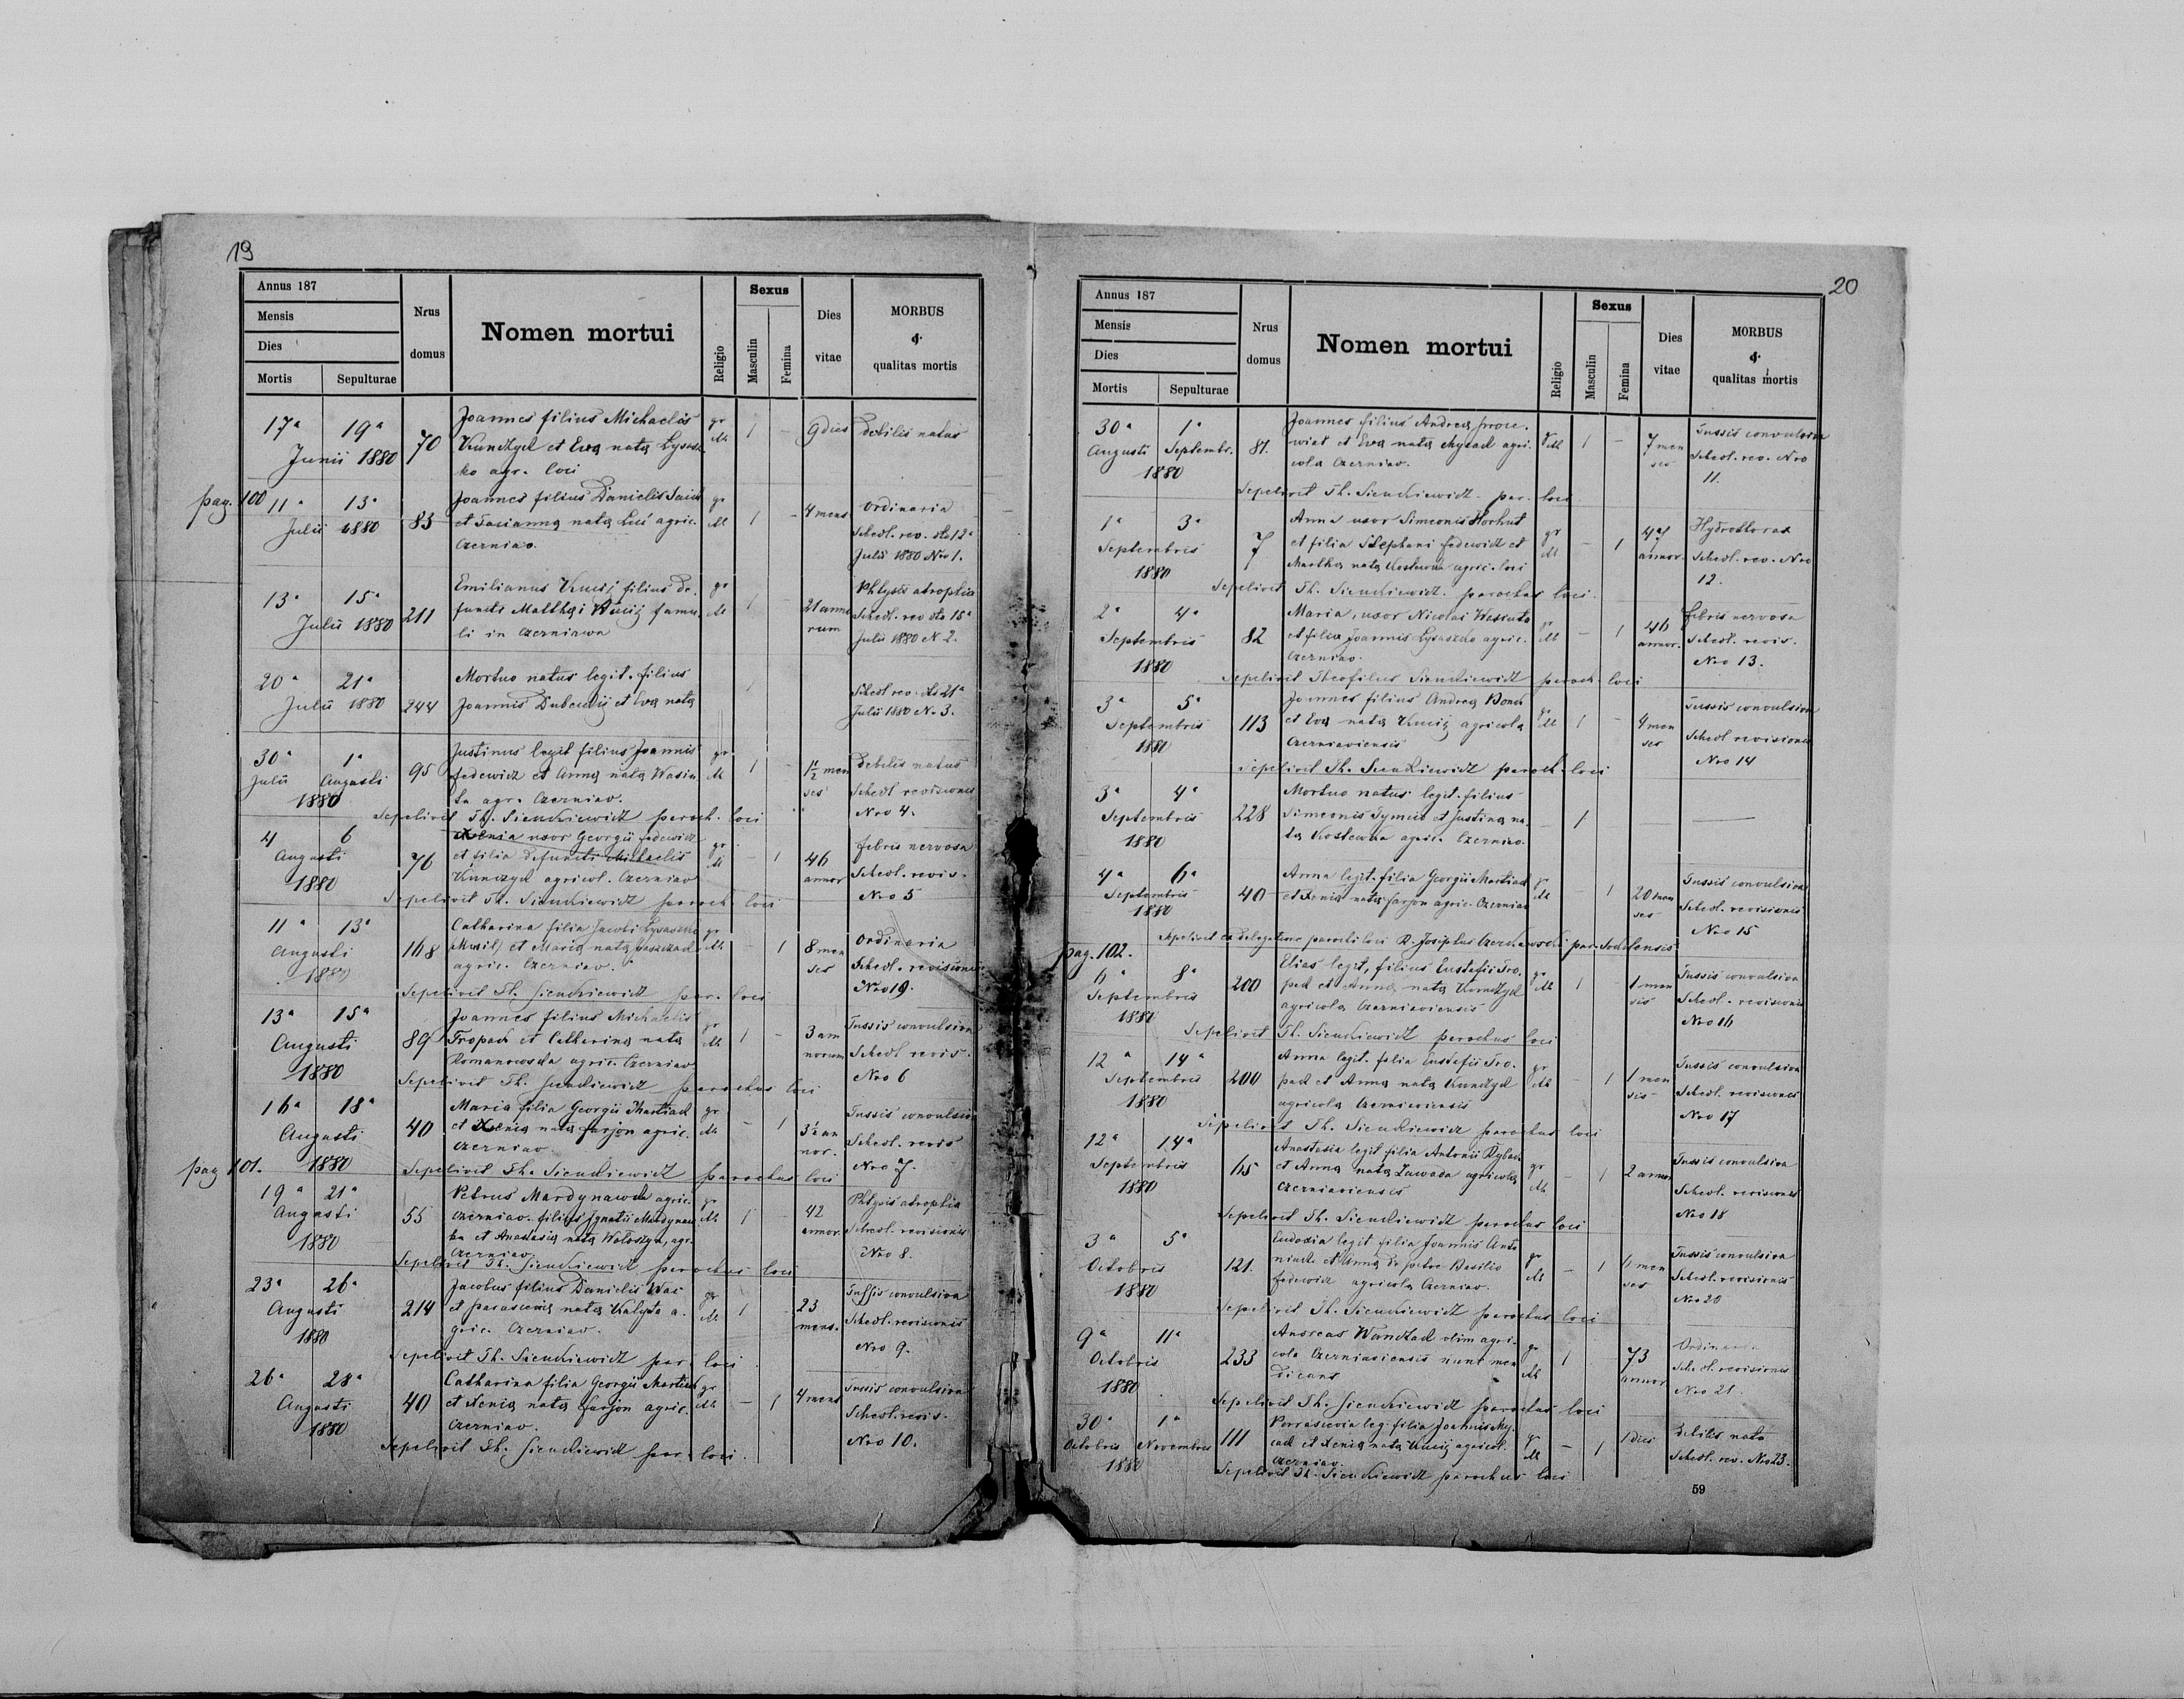 19
Annus 187
Mensis
Dies
Mortis Sepulturae
Nrus domus
Nomen mortui
Religio
Sexus
Masculin
Femina
Dies vitae
MORBUS
&
qualitas mortis
17a 19a
Junii 1880
70
Joannes filius Michaelis
et Eva nata
ko agr. loci
gr
1 -
9 dies
Debilis natus
pag. 100
11a 13a
Julii 1880
83
Joannes filius Danielis
et nata agric.
Czerniav.
gr
1 -
4 mens
Ordinaria
Schedl. rev. dto 12a
Julii 1880 Nro 1.
13a 15a
Julii 1880
211
Emilianus filius de-
functi Matthaei famu-
li in Czerniawa
gr
1
21 anno
rum
Phtysis atrophia
Schedl. rev dto 15a
Julii 1880 N. 2.
20a 21a
Julii 1880
244
Mortuo natus legit. filius
Joannis et Eva nata
1
Schedl rev. dto 21a
Julii 1880 N. 3.
30a 1a
Julii Augusti
1880
95
Justinus legit filius Joannis
Fedewicz et Anna nata Wasiu
ta agr. Czerniav.
gr
1 -
1½ men
ses
Debilis natus
Schedl revisionis
Nro 4.
Sepelivit Th. Sienkiewicz paroch. loci
4 6
Augusti
1880
76
Xenia uxor Georgii Fedewicz
et filia defuncti Michaelis
agricol. Czerniav
gr
- 1
46
annor
febris nervosa
Schedl. revis.
Nro 5
Sepelivit Th. Sienkiewicz paroch. loci
11a 13a
Augusti
1880
168
Catharina filia Jacobi Lysaszko
et Maria nata
agric. Czerniav.
gr
- 1
8 men
ses
Ordinaria
Schedl. revisionis
Nro 19.
Sepelivit Th. Sienkiewicz par. loci
13a 15a
Augusti
1880
89
Joannes filius Michaelis
Tropak et Catharina nata
Romanowska agric. Czerniav
gr
1 -
3 an
norum
Tussis convulsiva
Schedl revis.
Nro 6
Sepelivit Th. Sienkiewicz parochus loci
16a 18a
Augusti
1880
40
Maria filia Georgii Martiad
et Xenia nata Farjon agric.
Czerniav
gr
- 1
3½ an
nor.
Tussis convulsiva
Schedl. revis
Nro 7.
pag 101.
Sepelivit Th. Sienkiewicz parochus loci
19a 21a
Augusti
1880
55
Petrus Mardynawka agric.
Czerniav. filius Ignatii Mardynaw
ka et Anastasia nata Woloszyn, agr.
Czerniav.
gr
1 -
42
annor.
Phtysis atrophia
Schedl. revisionis
Nro 8.
Sepelivit Th. Sienkiewicz parochus loci
23a 26a
Augusti
1880
214
Jacobus filius Danielis
et Parascevia nata Kalyta a-
gric. Czerniav.
gr
1 -
23
mens.
Tussis convulsiva
Schedl. revisionis
Nro 9.
Sepelivit Th. Sienkiewicz par. loci
26a 28a
Augusti
1880
40
Catharina filia Georgii Martiad
et Xenia nata Farjon agric.
Czerniav.
gr
- 1
4 mens
Tussis convulsiva
Schedl. revis.
Nro 10.
Sepelivit Th. Sienkiewicz par. loci.
20
Annus 187
Mensis
Dies
Mortis Sepulturae
Nrus domus
Nomen mortui
Religio
Sexus
Masculin
Femina
Dies vitae
MORBUS
&
qualitas mortis
30a 1a
Augusti Septembr.
1880
81.
Joannes filius Andrea
et Eva nata agri-
cola Czerniav.
1 -
7 men
ses
Tussis convulsiva
Schedl. rev. Nro
11.
Sepelivit Th. Sienkiewicz par. loci
1a 3a
Septembris
1880
7
Anna uxor Simeonis Horhut
et filia Stephani Fedewicz et
Martha nata Kostewka agric. loci
gr
- 1
47
annor.
Hydrothorax
Schedl. rev. Nro
12.
Sepelivit Th. Sienkiewicz. parochus loci.
2a 4a
Septembris
1880
82
Maria, uxor Nicolai Wasiuta
et filia Joannis Lysaszko agric.
Czerniav.
gr
- 1
46
annor.
febris nervosa
Schedl. revis.
Nro 13.
Sepelivit Theofilus Sienkiewicz paroch. loci
3a 5a
Septembris
1880
113
Joannes filius Andrea
et Eva nata agricola
Czerniaviensis
gr
1 -
4 men
ses
Tussis convulsiva
Schedl revisionis
Nro 14
Sepelivit Th. Sienkiewicz paroch. loci
3a 4a
Septembris
1880
228
Mortuo natus legit. filius
Simeonis Tymcio et Justina na-
ta Kostewka agric. Czerniav.
- 1
4a 6a
Septembris
1880
40
Anna legit. filia Georgii Martiad
et Xenia nata Farjon agric. Czerniav
gr
- 1
20 men
ses
Tussis convulsiva
Schedl. revisionis
Nro 15
Sepelivit ex delegatione parochi loci R. Josephus
pag. 102.
6a 8a
Septembris
1880
200
Elias legit, filius Eustafii Tro-
pak et Anna nata
agricola Czerniaviensis
gr
1 -
1 men
sis
Tussis convulsiva
Schedl. revisionis
Nro 16
Sepelivit Th. Sienkiewicz parochus loci
12a 14a
Septembris
1880
200
Anna legit. filia Eustafii Tro-
pak et Anna nata
agricola Czerniaviensis
gr
- 1
1 men
sis
Tussis convulsiva
Schedl. revisionis
Nro 17
Sepelivit Th. Sienkiewicz parochus loci
12a 14a
Septembris
1880
65
Anastasia legit filia Antonii
et Anna nata Zawada agricola
Czerniaviensis
gr
- 1
2 annor
Tussis convulsiva
Schedl. revisionis
Nro 18
Sepelivit Th. Sienkiewicz parochus loci
3a 5a
Octobris
1880
121.
Eudoxia legit filia Joannis Anto
niuk et Anna de patre Basilio
Fedewicz agricola Czerniav.
gr
- 1
men
ses
Tussis convulsiva
Schedl. revisionis
Nro 20
Sepelivit Th. Sienkiewicz parochus loci
9a 11a
Octobris
1880
233
Andreas olim agri-
cola Czerniaviensis nunc men
dicans
gr
1
73
annor
Ordinaria
Schedl. revisionis
Nro 21.
Sepelivit Th. Sienkiewicz parochus loci
30a 1a
Octobris Novembris
1880
111
Parascevia leg. filia Joannis
et Xenia nata agricol.
Czerniav.
gr
- 1
1 dies
debilis nata
Schedl. rev. Nro 23.
Sepelivit Th. Sienkiewicz parochus loci
59